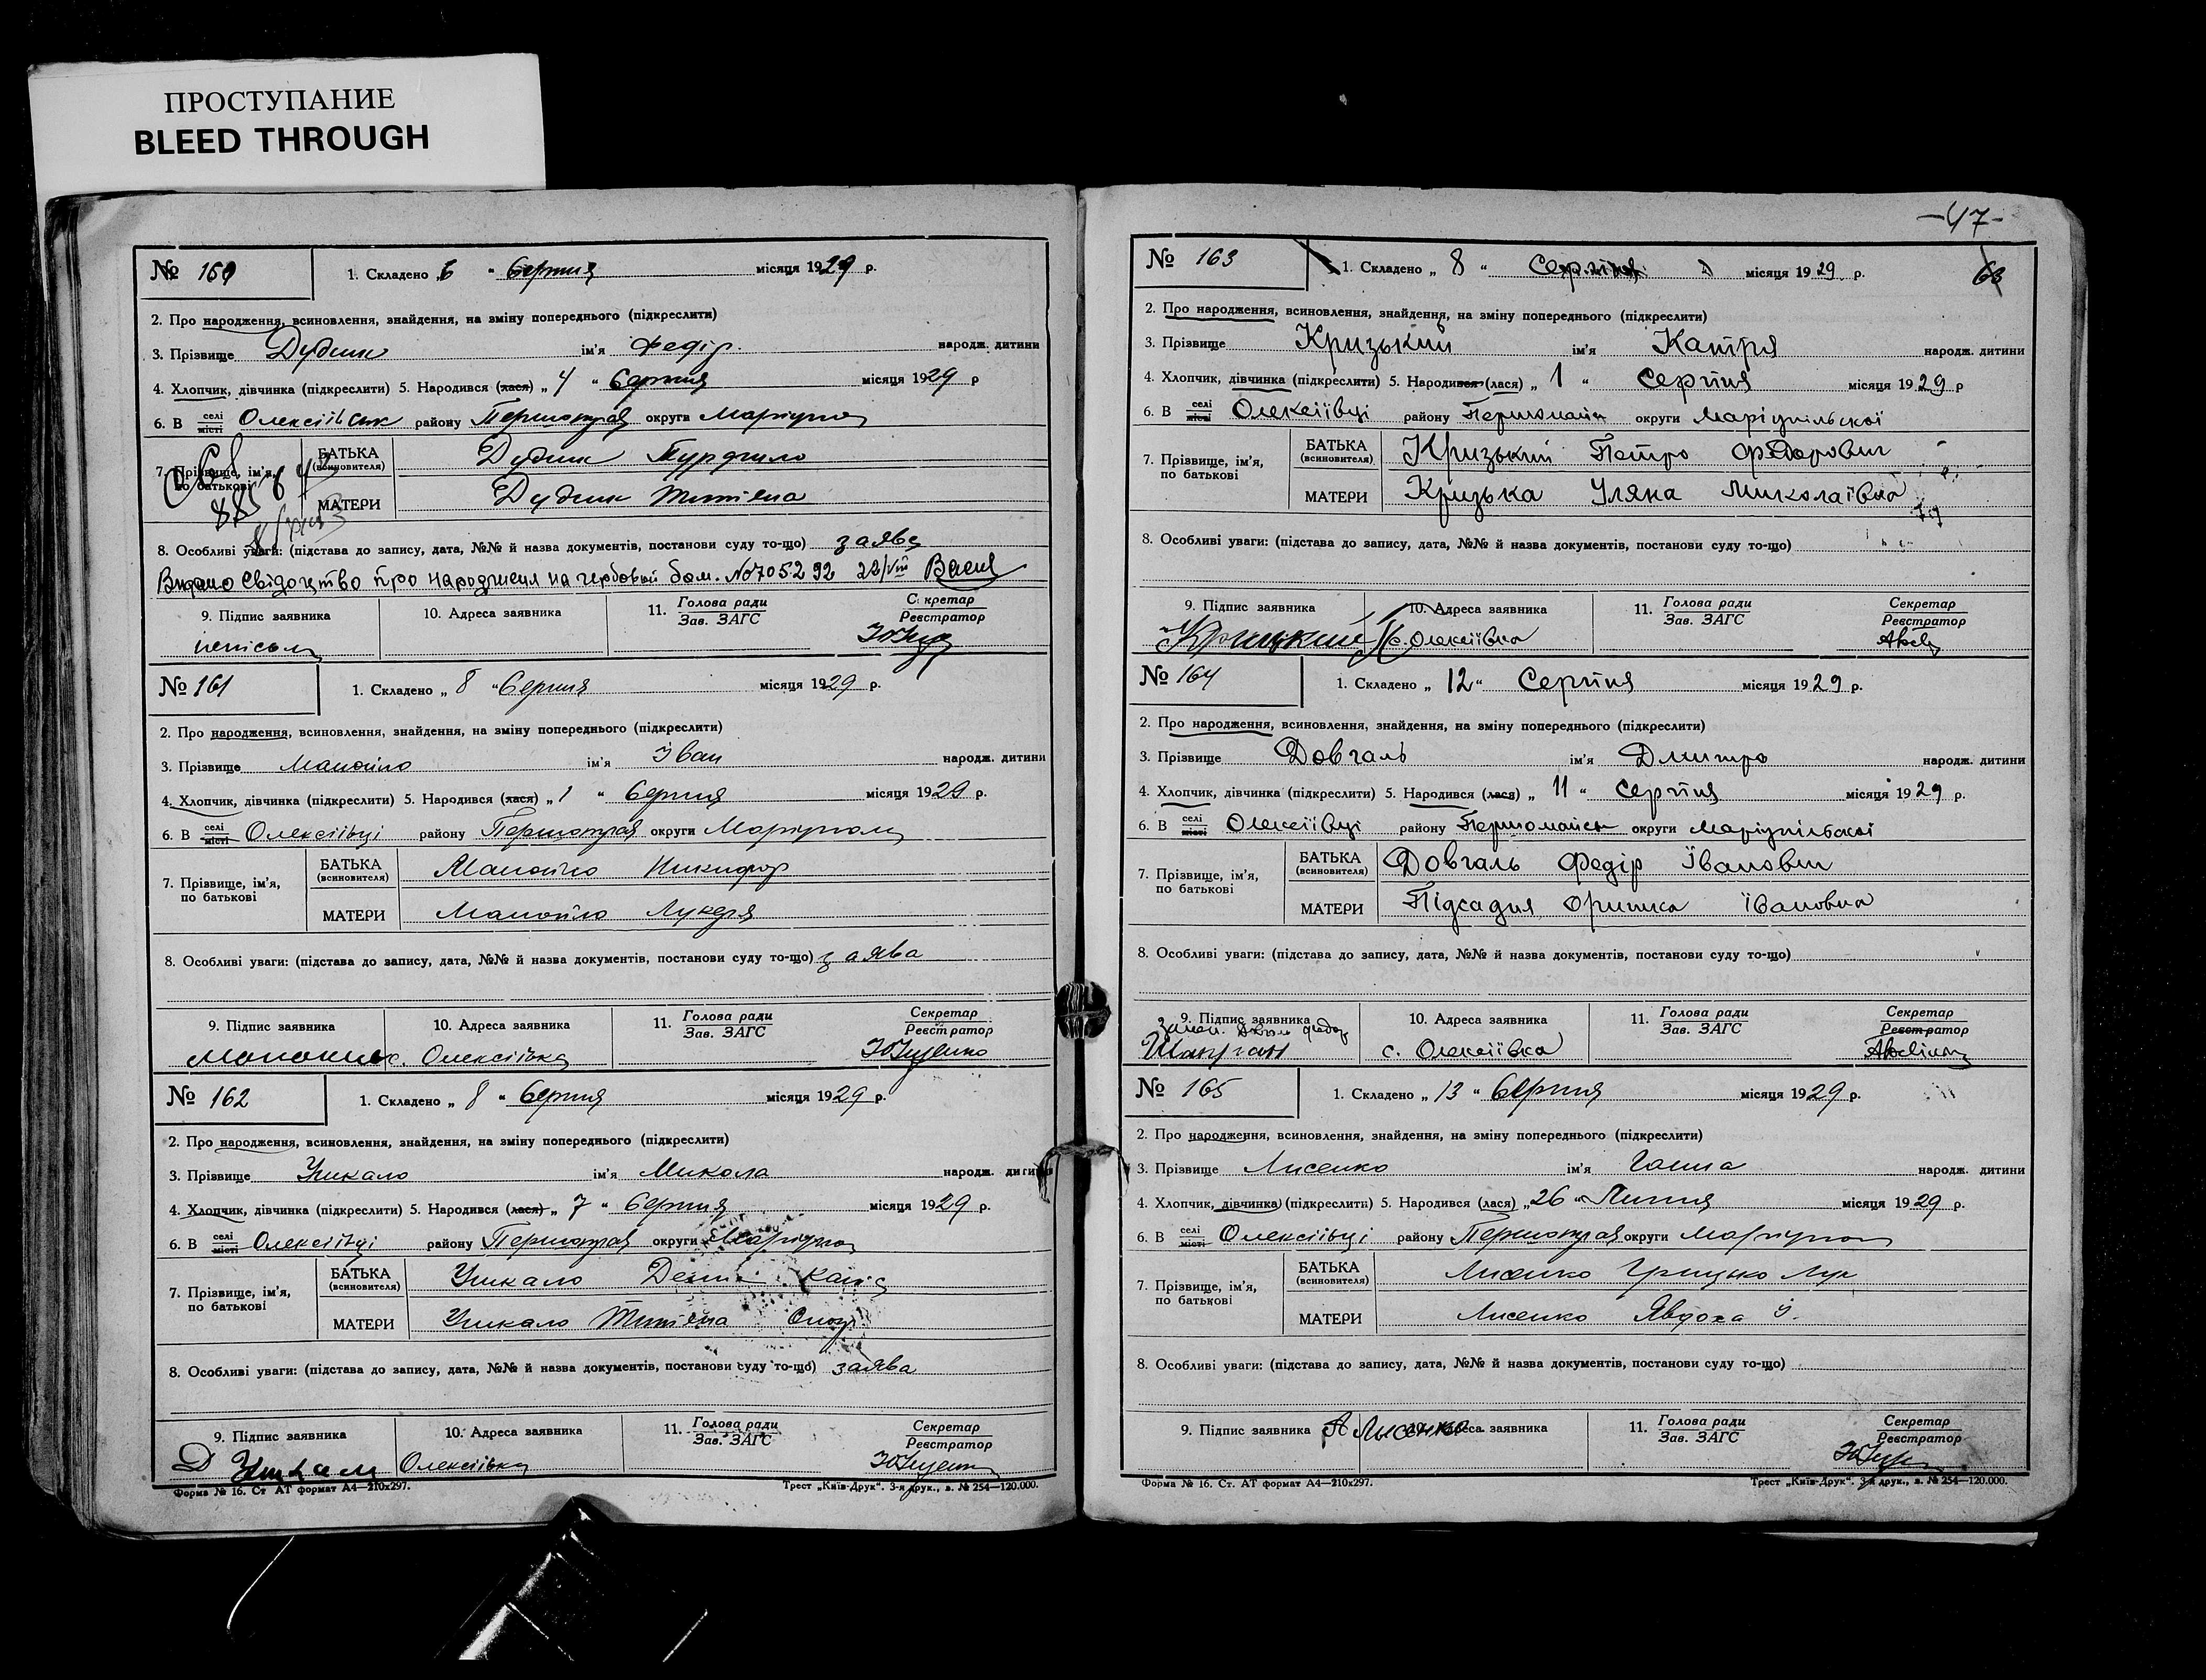 ПРОСТУПАНИЕ
BLEED THROUGH
№ 160 1. Складено „ 6 “ Серпня місяця 1929 р.
2. Про народження, всиновлення, знайдення, на зміну попереднього (підкреслити)
3. Прізвище Дудник ім'я Федір народж. дитини
4. Хлопчик, дівчинка (підкреслити) 5. Народився (лася) „ 4 “ Серпня місяця 1929 р
6. В селі місті району округи Маріупол
7. Прізвище, ім'я, по батькові
БАТЬКА (всиновителя) Дудник
МАТЕРИ Дудник Тит'яна
8. Особливі уваги: (підстава до запису, дата, №№ й назва документів, постанови суду то-що) заява
Видано свідоцтво про народження на гербовый бом. №705292 22/VIII
9. Підпис заявника 10. Адреса заявника 11. Голова ради Зав. ЗАГС Секретар Реєстратор
№ 161 1. Складено „ 8 “ Серпня місяця 1929 р.
2. Про народження, всиновлення, знайдення, на зміну попереднього (підкреслити)
3. Прізвище Манойло ім'я Іван народж. дитини
4. Хлопчик, дівчинка (підкреслити) 5. Народився (лася) „ 1 “ Серпня місяця 1929 р.
6. В селі місті Олексіївці району округи Маріупол
7. Прізвище, ім'я, по батькові
БАТЬКА (всиновителя) Манойло Никифор
МАТЕРИ Манойло Лукер'я
8. Особливі уваги: (підстава до запису, дата, №№ й назва документів, постанови суду то-що) заява
9. Підпис заявника 10. Адреса заявника 11. Голова ради Зав. ЗАГС Секретар Реєстратор
с. Олексіївка
№ 162 1. Складено „ 8 “ Серпня місяця 1929 р.
2. Про народження, всиновлення, знайдення, на зміну попереднього (підкреслити)
3. Прізвище Учкало ім'я Микола народж. дитини
4. Хлопчик, дівчинка (підкреслити) 5. Народився (лася) „ 7 “ Серпня місяця 1929 р.
6. В селі місті Олексіївці району округи Маріупол
7. Прізвище, ім'я, по батькові
БАТЬКА (всиновителя) Учкало
МАТЕРИ Учкало Тит'яна
8. Особливі уваги: (підстава до запису, дата, №№ й назва документів, постанови суду то-що) заява
9. Підпис заявника 10. Адреса заявника 11. Голова ради Зав. ЗАГС Секретар Реєстратор
Олексіївка
Форма № 16. Ст АТ формат А4—210х297. Трест „Київ-Друк“. 3-я друк., в. № 254—120.000.
-47-
63
№ 163 1. Складено „ 8 “ Серпня місяця 1929 р.
2. Про народження, всиновлення, знайдення, на зміну попереднього (підкреслити)
3. Прізвище Кризький ім'я Катря народж. дитини
4. Хлопчик, дівчинка (підкреслити) 5. Народився (лася) „ 1 “ Серпня місяця 1929 р
6. В селі місті Олексіївці району Першомайск округи Маріупільскої
7. Прізвище, ім'я, по батькові
БАТЬКА (всиновителя) Кризький Петро Федорович
МАТЕРИ Кризька Уляна Миколаївна
8. Особливі уваги: (підстава до запису, дата, №№ й назва документів, постанови суду то-що)
9. Підпис заявника 10. Адреса заявника 11. Голова ради Зав. ЗАГС Секретар Реєстратор
с. Олексіївка
№ 164 1. Складено „ 12 “ Серпня місяця 1929 р.
2. Про народження, всиновлення, знайдення, на зміну попереднього (підкреслити)
3. Прізвище Довгаль ім'я Дмитро народж. дитини
4. Хлопчик, дівчинка (підкреслити) 5. Народився (лася) „ 11 “ Серпня місяця 1929 р.
6. В селі місті Олексіївці району Першомайск округи маріупільскої
7. Прізвище, ім'я, по батькові
БАТЬКА (всиновителя) Довгаль Федір Іванович
МАТЕРИ Підсадня Оришка Івановна
8. Особливі уваги: (підстава до запису, дата, №№ й назва документів, постанови суду то-що)
9. Підпис заявника 10. Адреса заявника 11. Голова ради Зав. ЗАГС Секретар Реєстратор
с. Олексіївка
№ 165 1. Складено „ 13 “ Серпня місяця 1929 р.
2. Про народження, всиновлення, знайдення, на зміну попереднього (підкреслити)
3. Прізвище Лисенко ім'я Ганна народж. дитини
4. Хлопчик, дівчинка (підкреслити) 5. Народився (лася) „ 26 “ Липня місяця 1929 р.
6. В селі місті Олексіївці району округи Маріупол
7. Прізвище, ім'я, по батькові
БАТЬКА (всиновителя) Лисенко Грицько Лук
МАТЕРИ Лисенко Явдоха І.
8. Особливі уваги: (підстава до запису, дата, №№ й назва документів, постанови суду то-що)
9. Підпис заявника А Лысенко 10. Адреса заявника 11. Голова ради Зав. ЗАГС Секретар Реєстратор
Форма № 16. Ст. АТ формат А4—210х297. Трест „Київ-Друк“. 3-я друк., в. № 254—120.000.